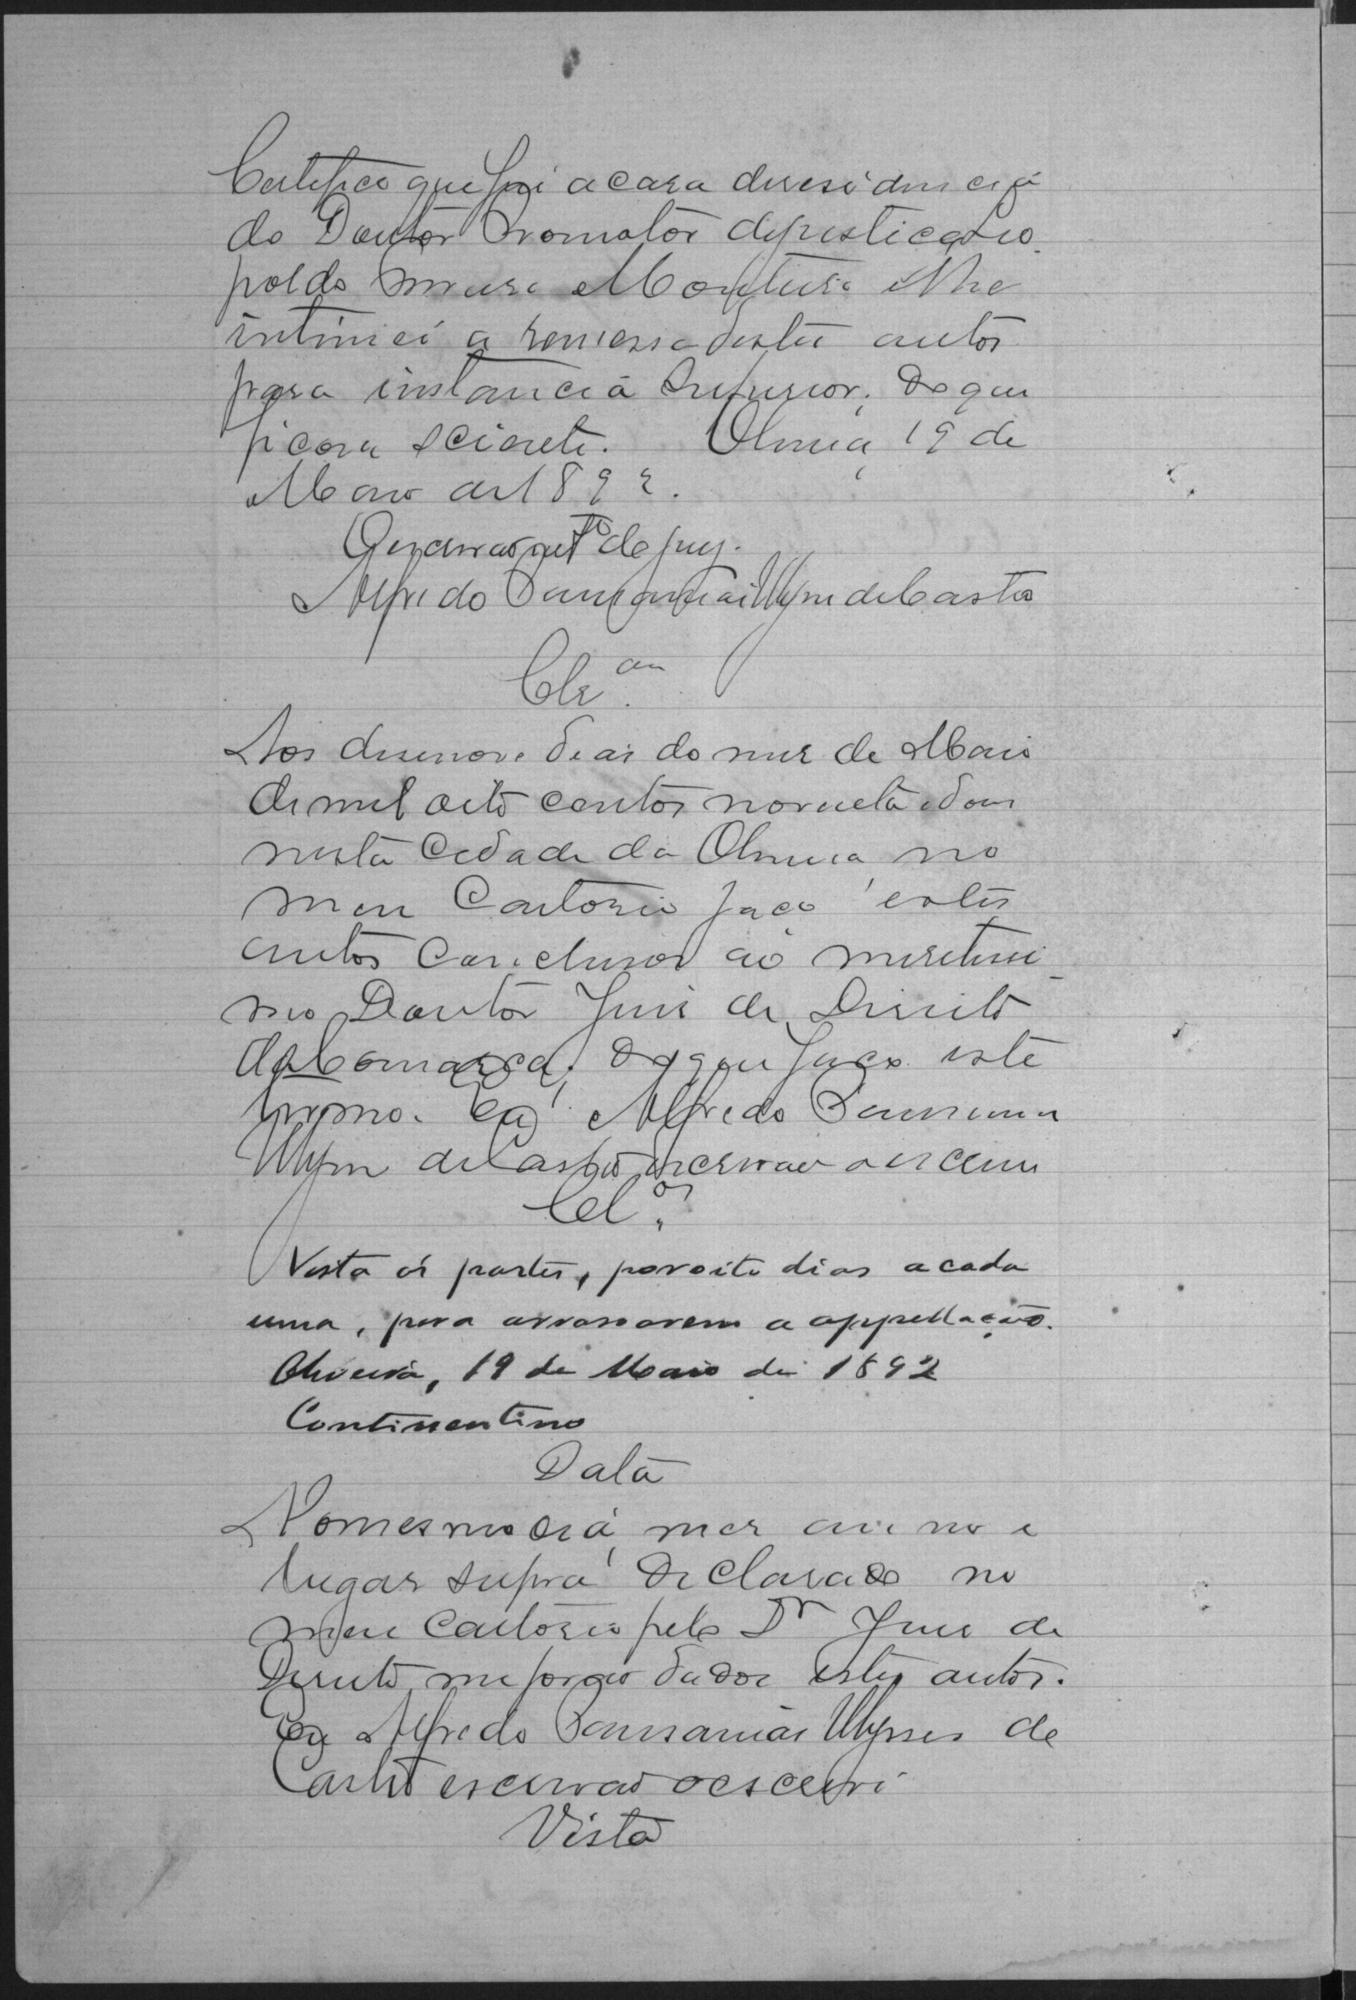 Certifico que fui a casa de residencia
do Doutor Promotor de justiça Leo
poldo Monteiro e lhe
intimei a remessa destes autos
para instancia Superior; do que
ficou sciente. Oliveira, 19 de
Maio de 1892.
O escrivão de jury.
Alfredo Pausanias Ulysses de Castro
Clsam
Aos desenove dias do mes de Maio
de mil oito centos noventa e dous
nesta Cidade da Oliveira, no
meu Cartorio faço estes
autos conclusos ao meretissi
mo Doutor Juis de Direito
da Comarca; do que faço este
termo. Eu, Alfredo Pausanias
Ulysses de Castro escrivão o escrevi
Cls.
Vista ás partes, por oito dias a cada
uma, para arrasoarem a appellação.
Oliveira, 19 de Maio de 1892
Continentino
Data
No mesmo dia, mes anno e
lugar supra declarado no
meu Cartorio pelo Dr Juis de
Direito me forão dados estes autos.
Eu Alfredo Pausanias Ulysses de
Castro escrivão o escrevi
Vista